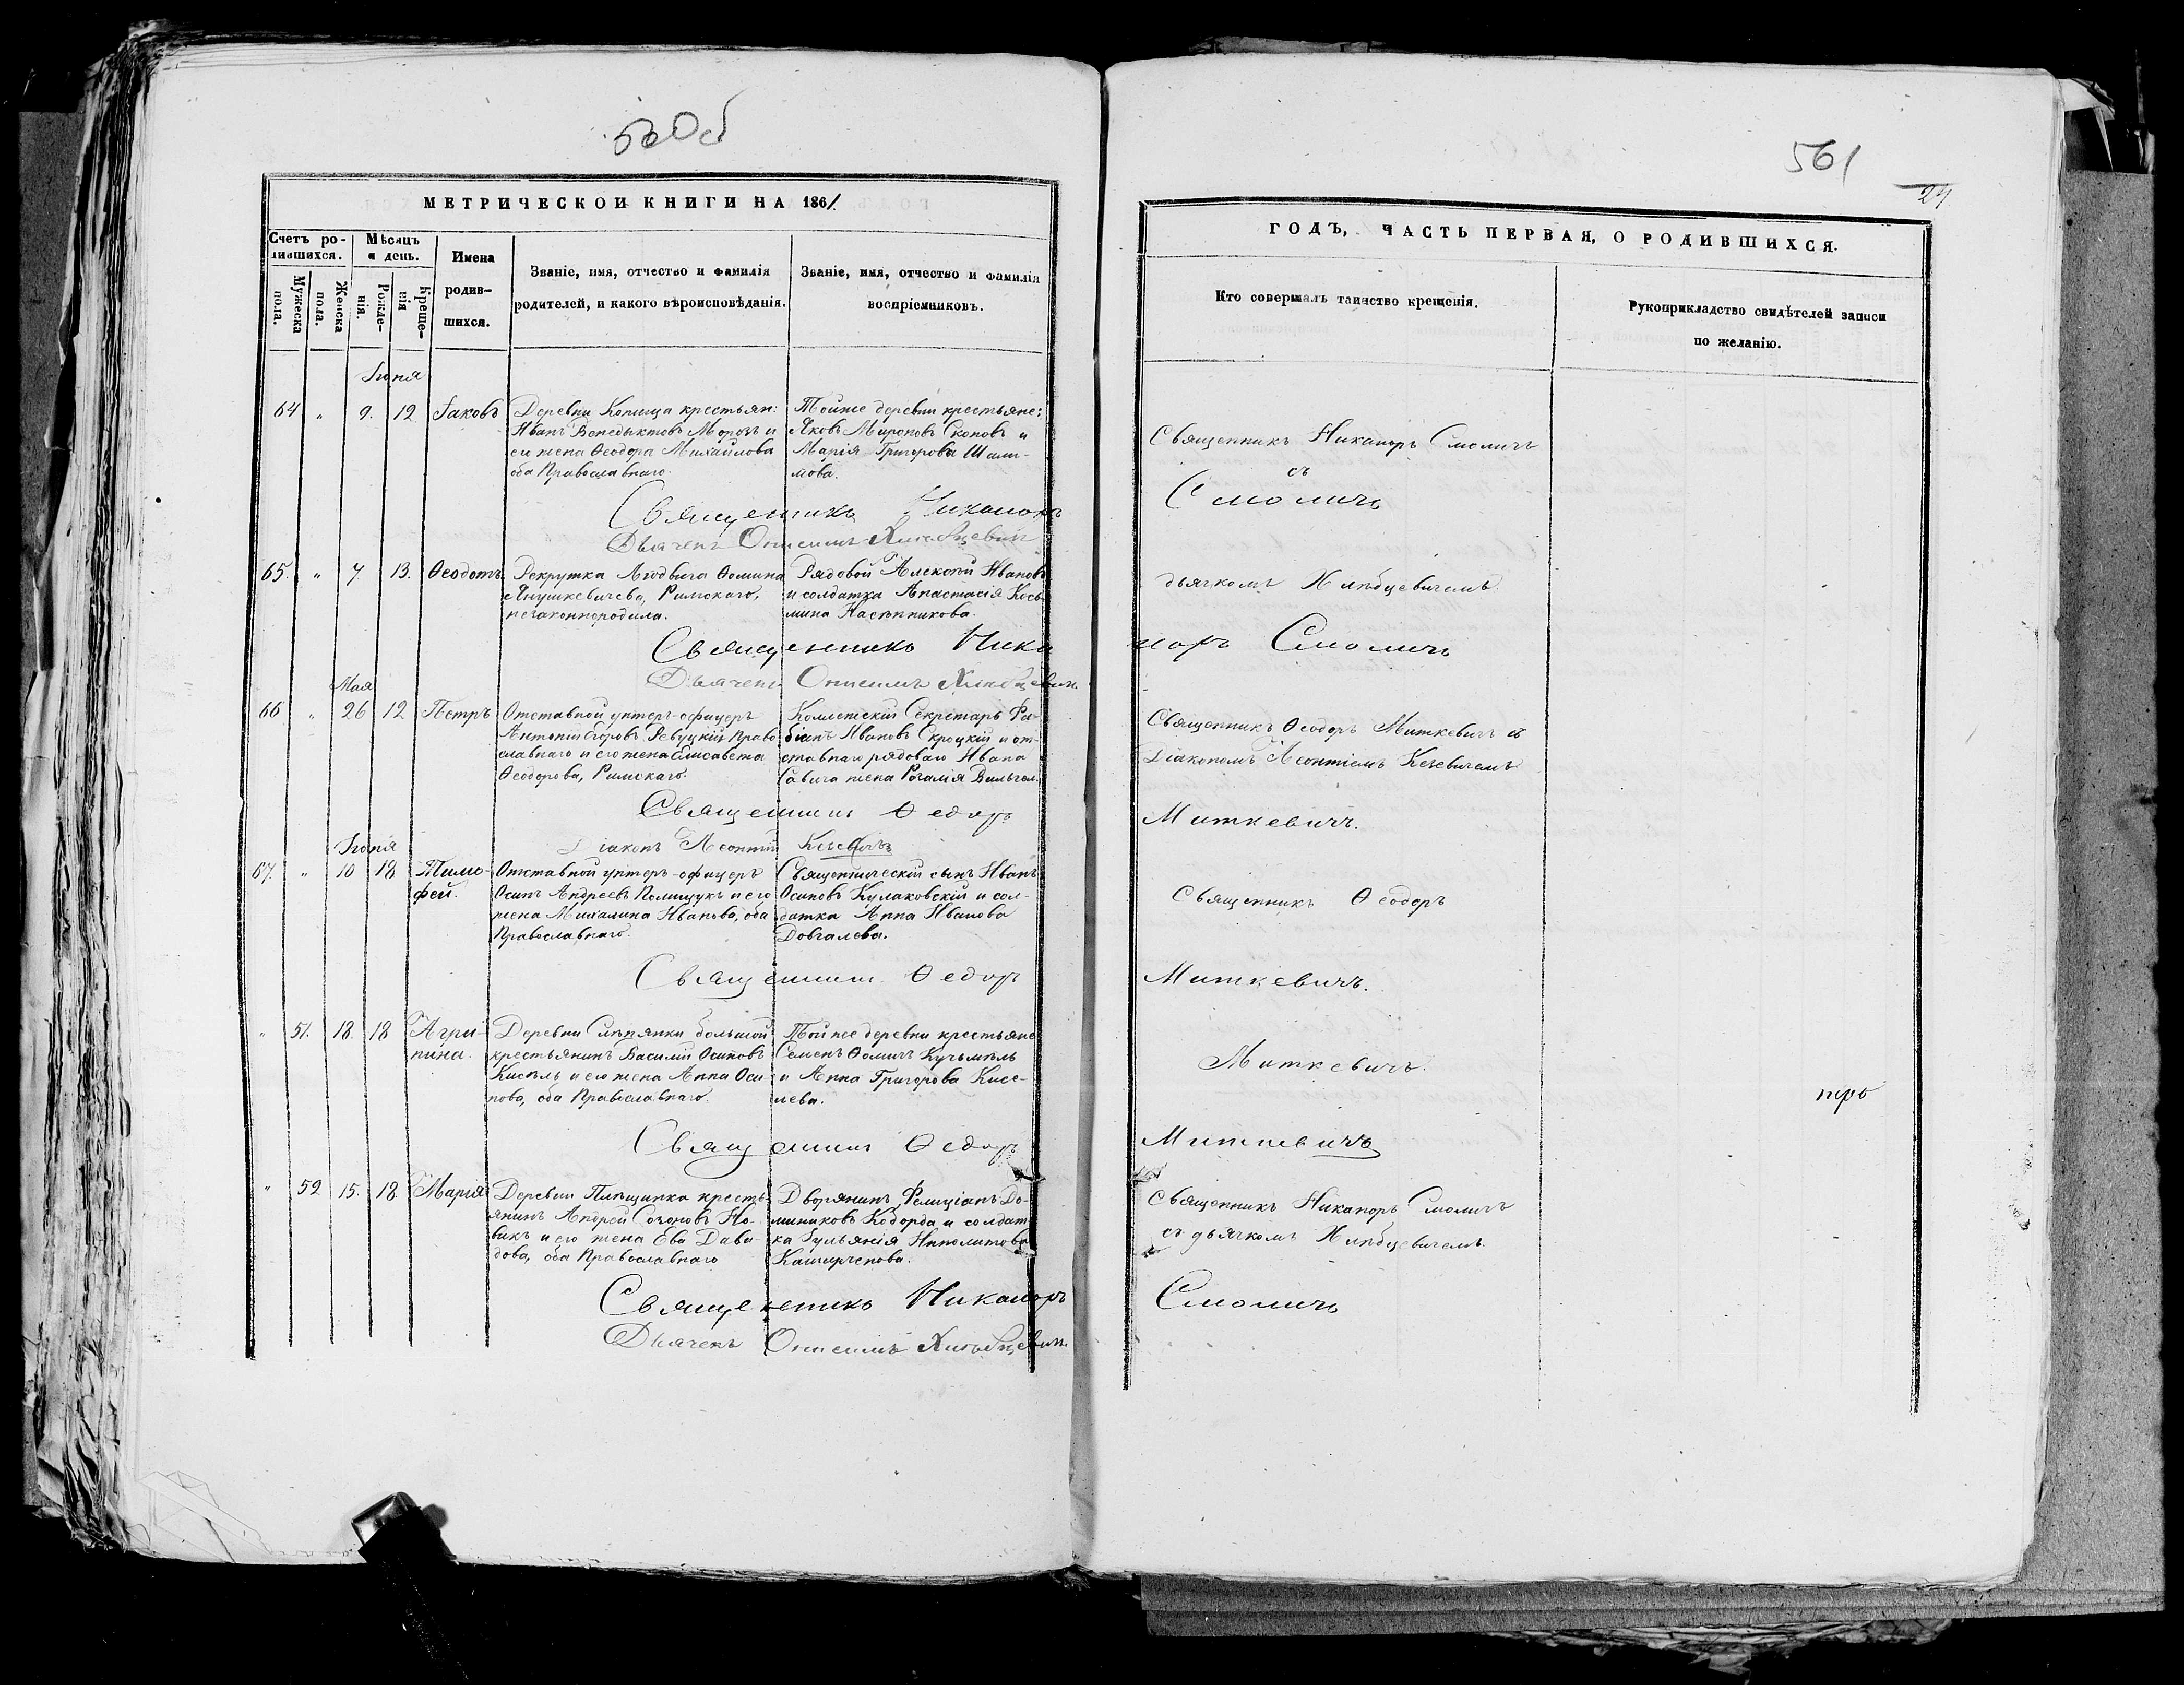 560об
МЕТРИЧЕСКОЙ КНИГИ НА 1861.
Счетъ ро-
дившихся.
Мѣсяцъ
и день.
Имена
родив-
шихся.
Званіе, имя, отчество и фамилія
родителей, и какого вѣроисповѣданія.
Званіе, имя, отчество и фамилія
воспріемниковъ.
Мужеска
пола.
Женска
пола.
Рожде-
нія.
Креще-
нія
Іюня
64 " 9. 12 Іаковъ Деревни Копища крестьян:
Иванъ Венедыктовъ Морозъ и
его жена Ѳеодора Михайлова
оба Православнаго.
Тойже деревни крестьяне:
Яковъ Мироновъ Скоповъ и
Марія Григорова Шали-
мова.
Священникъ Никаноръ
Дьячекъ Онисимъ Хлѣбцевичъ
65. " 7. 13. Ѳеодотъ Рекрутка Людвига Ѳомина
Янушкевичева, Римскаго,
незаконнородила.
Рядовой Алексѣй Ивановъ
и солдатка Анастасія Кось-
мина Наслѣнникова.
Священникъ Ника
Дьячекъ Онисимъ Хлѣбцевичъ.
Мая
66 " 26 12 Петръ Отставной унтеръ-офицеръ
Антоній Егоровъ Ревуцкій Право-
славнаго и его жена Елисавета
Ѳеодорова, Римскаго.
Коллежскій Секретарь Фа-
біянъ Ивановъ Скроцкій и от-
ставнаго рядоваго Ивана
Савича жена Розалія Вильгел.
Священникъ Ѳедоръ
Діаконъ Леонтій Кезевичъ
Іюня
67. " 10 18 Тимо-
фей.
Отставной унтеръ-офицеръ
Осипъ Андреевъ Полищукъ и его
жена Михалина Иванова, оба
Православнаго.
Священническій сынъ Иванъ
Осиповъ Кулаковскій и сол-
датка Анна Иванова
Довгалева.
Священникъ Ѳедоръ
" 51. 18. 18 Агри-
пина.
Деревни Слѣпянки большой
крестьянинъ Василій Осиповъ
Кисѣль и его жена Анна Оси-
пова, оба Православнаго.
Той же деревни крестьяне
Семенъ Ѳомичъ Кучьмѣль
и Анна Григорова Кисе-
лева.
Священникъ Ѳедоръ
" 52 15. 18. Марія Деревни Пильщинка кресть-
янинъ Андрей Созоновъ Но-
викъ и его жена Ева Дави-
дова, оба Православнаго
Дворянинъ Фелиціанъ До-
миниковъ Кодорда и солдат-
ка Гульянія Ипполитова
Каширченова.
Священникъ Никаноръ
Дьячекъ Онисимъ Хлѣбцевичъ.
561
24
ГОДЪ, ЧАСТЬ ПЕРВАЯ, О РОДИВШИХСЯ.
Кто совершалъ таинство крещенія.
Рукоприкладство свидѣтелей записи
по желанію.
Священникъ Никаноръ Смоличъ
съ
Смоличъ
дьячкомъ Хлѣбцевичемъ.
норъ Смоличъ
Священникъ Ѳеодоръ Миткевичъ съ
Діакономъ Леонтіемъ Кезевичемъ
Миткевичъ.
Священникъ Ѳеодоръ
Миткевичъ.
Миткевичъ.
Миткевичъ
Священникъ Никаноръ Смоличъ
съ дьячкомъ Хлѣбцевичемъ.
Смоличъ